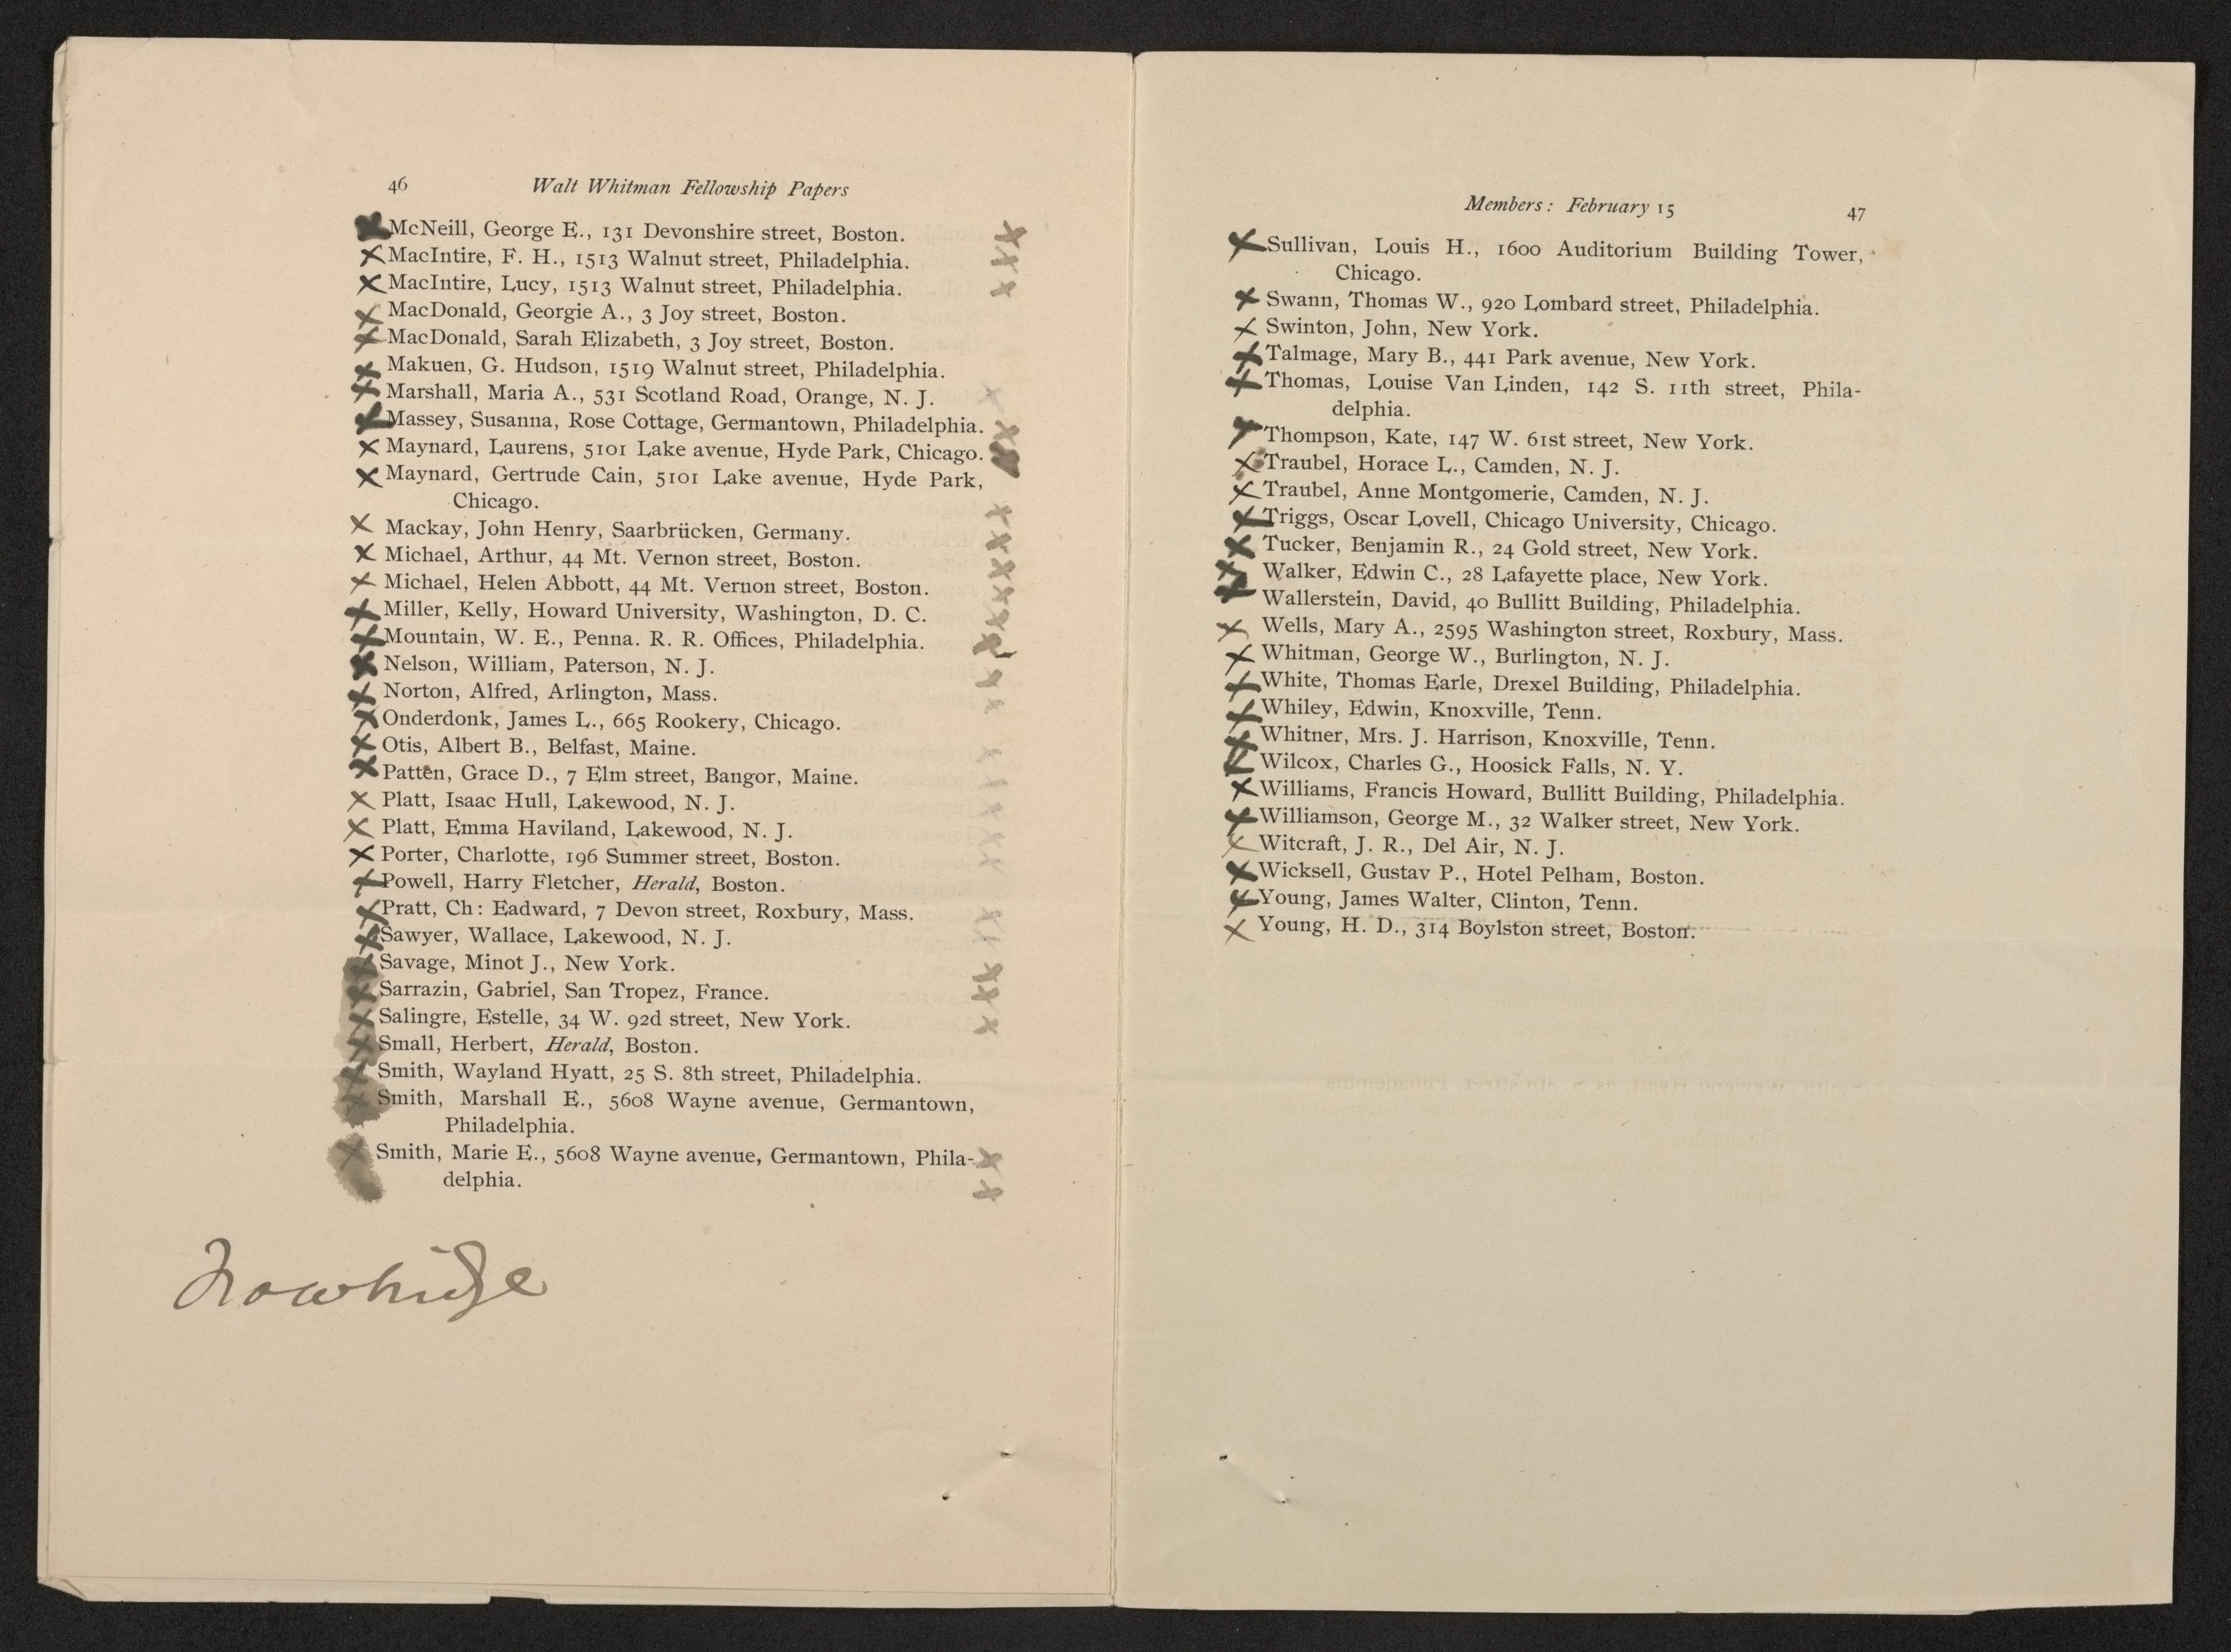 46 Walt Whitman Fellowship Papers
McNeill, George E., 131 Devonshire street, Boston.
MacIntire, F. H., 1513 Walnut street, Philadelphia.
MacIntire, Lucy, 1513 Walnut street, Philadelphia.
MacDonald, Georgie A., 3 Joy street, Boston.
MacDonald, Sarah Elizabeth, 3 Joy street, Boston.
Makuen, G. Hudson, 1519 Walnut street, Philadelphia.
Marshall, Maria A., 531 Scotland Road, Orange, N. J.
Massey, Susanna, Rose Cottage, Germantown, Philadelphia.
Maynard, Laurens, 5101 Lake avenue, Hyde Park, Chicago.
Maynard, Gertrude Cain, 5101 Lake avenue, Hyde Park,
Chicago.
Mackay, John Henry, Saarbrücken, Germany.
Michael, Arthur, 44 Mt. Vernon street, Boston.
Michael, Helen Abbott, 44 Mt. Vernon street, Boston.
Miller, Kelly, Howard University, Washington, D. C.
Mountain, W. E., Penna. R. R. Offices, Philadelphia.
Nelson, William, Paterson, N. J.
Norton, Alfred, Arlington, Mass.
Onderdonk, James L., 665 Rookery, Chicago.
Otis, Albert B., Belfast, Maine.
Patten, Grace D., 7 Elm street, Bangor, Maine.
Platt, Isaac Hull, Lakewood, N. J.
Platt, Emma Haviland, Lakewood, N. J.
Porter, Charlotte, 196 Summer street, Boston.
Powell, Harry Fletcher, Herald, Boston.
Pratt, Ch: Eadward, 7 Devon street, Roxbury, Mass.
Sawyer, Wallace, Lakewood, N. J.
Savage, Minot J., New York.
Sarrazin, Gabriel, San Tropez, France.
Salingre, Estelle, 34 W. 92d street, New York.
Small, Herbert, Herald, Boston.
Smith, Wayland Hyatt, 25 S. 8th street, Philadelphia.
Smith, Marshall E., 5608 Wayne avenue, Germantown,
Philadelphia.
Smith, Marie E., 5608 Wayne avenue, Germantown, Phila-
delphia.
Members: February 15 47
Sullivan, Louis H., 1600 Auditorium Building Tower,
Chicago.
Swann, Thomas W., 920 Lombard street, Philadelphia.
Swinton, John, New York.
Talmage, Mary B., 441 Park avenue, New York.
Thomas, Louise Van Linden, 142 S. 11th street, Phila-
delphia.
Thompson, Kate, 147 W. 61st street, New York.
Traubel, Horace L., Camden, N. J.
Traubel, Anne Montgomerie, Camden, N. J.
Triggs, Oscar Lovell, Chicago University, Chicago.
Tucker, Benjamin R., 24 Gold street, New York.
Walker, Edwin C., 28 Lafayette place, New York.
Wallerstein, David, 40 Bullitt Building, Philadelphia.
Wells, Mary A., 2595 Washington street, Roxbury, Mass.
Whitman, George W., Burlington, N. J.
White, Thomas Earle, Drexel Building, Philadelphia.
Whiley, Edwin, Knoxville, Tenn.
Whitner, Mrs. J. Harrison, Knoxville, Tenn.
Wilcox, Charles G., Hoosick Falls, N. Y.
Williams, Francis Howard, Bullitt Building, Philadelphia.
Williamson, George M., 32 Walker street, New York.
Witcraft, J. R., Del Air, N. J.
Wicksell, Gustav P., Hotel Pelham, Boston.
Young, James Walter, Clinton, Tenn.
Young, H. D., 314 Boylston street, Boston.